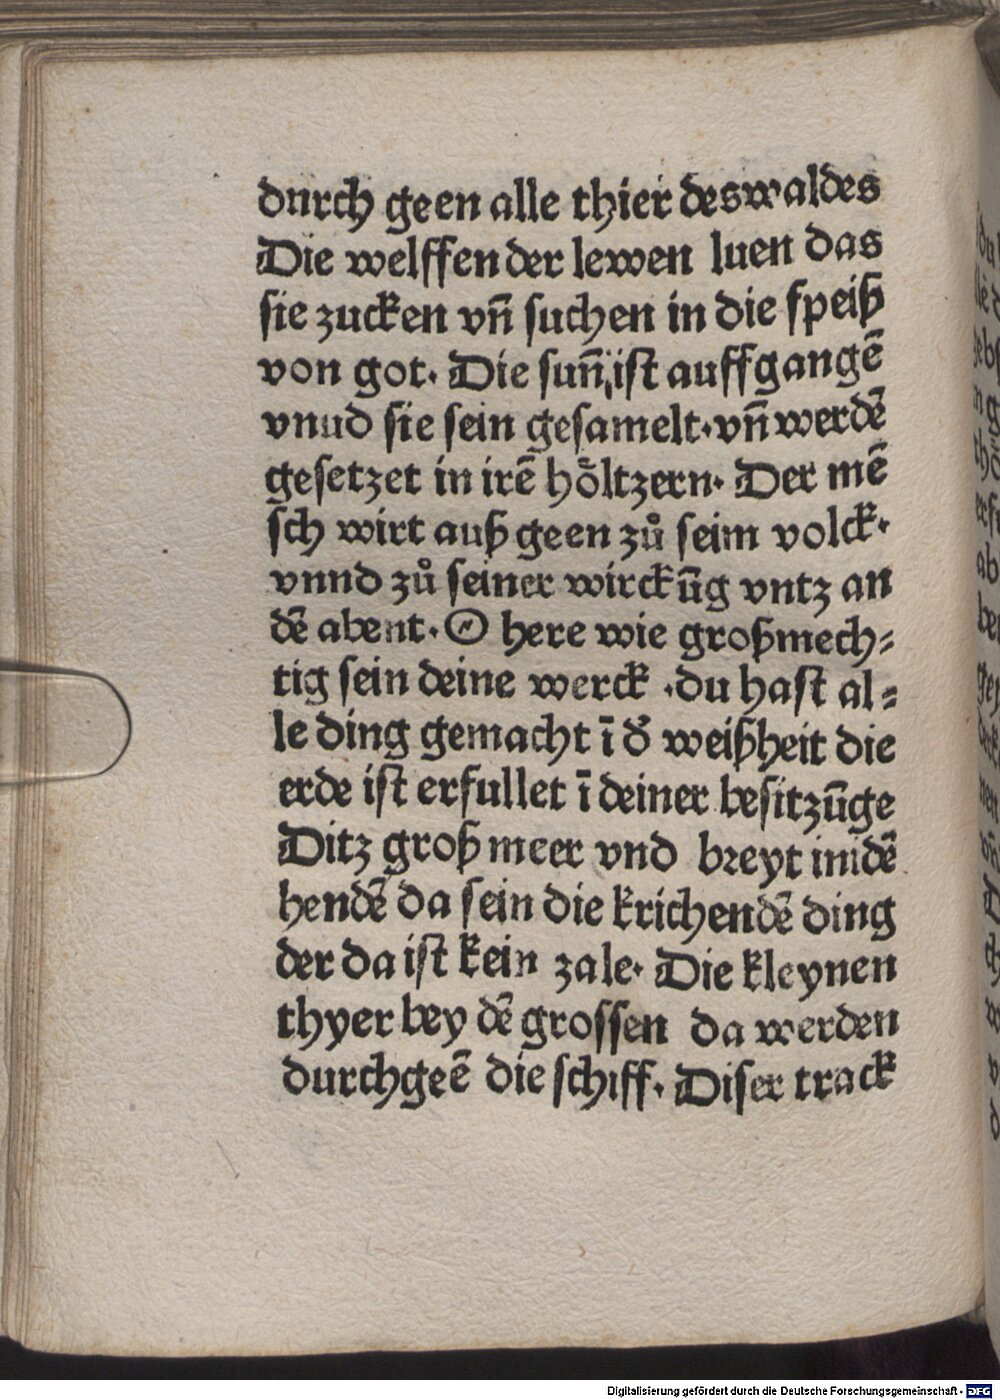 durch geen alle thier deswaldes
Die welffen der lewen luen das
sie zucken vn̄ suchen in die speiß
von got. Die sun̄ ist auffgangē
vnnd sie sein gesamelt. vn̄ werdē
gesetzet in irē hoͤltzern. Der mē
sch wirt auß geen zů seim volck.
vnnd zů seiner wirckūg vntz an
dē abent. O here wie großmech⸗
tig sein deine werck .du hast al⸗
le ding gemacht ī d̕ weißheit die
erde ist erfullet ī deiner besitzūge
Ditz groß meer vnd breyt in idē
hendē da sein die krichendē ding
der da ist kein zale. Die kleynen
thyer bey dē grossen da werden
durchgeē die schiff. Diser track
Digitalisierung gefördert durch die Deutsche Forschungsgemeinschaft - DFG